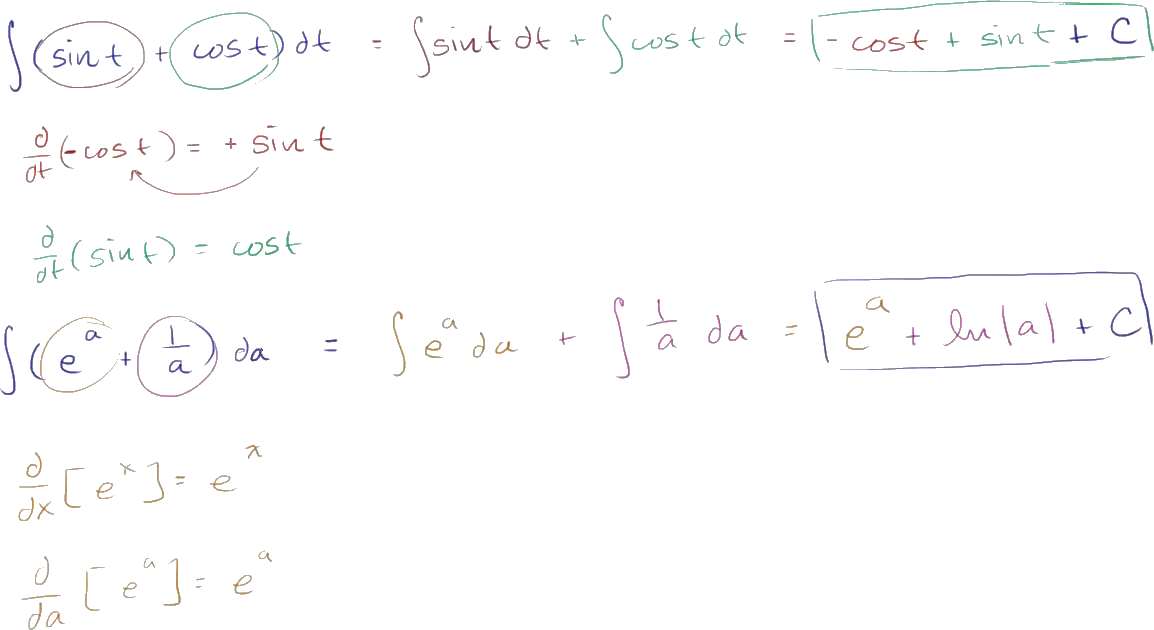 ∫(sin t + cos t) dt = ∫sin t dt + ∫cos t dt = -cos t + sin t + C
d/dt (-cos t) = + sin t
d/dt (sin t) = cos t
∫(e^a + 1/a) da = ∫ e^a da + ∫ 1/a da = e^a + ln|a| + C
d/dx [e^x] = e^x
d/da [e^a] = e^a